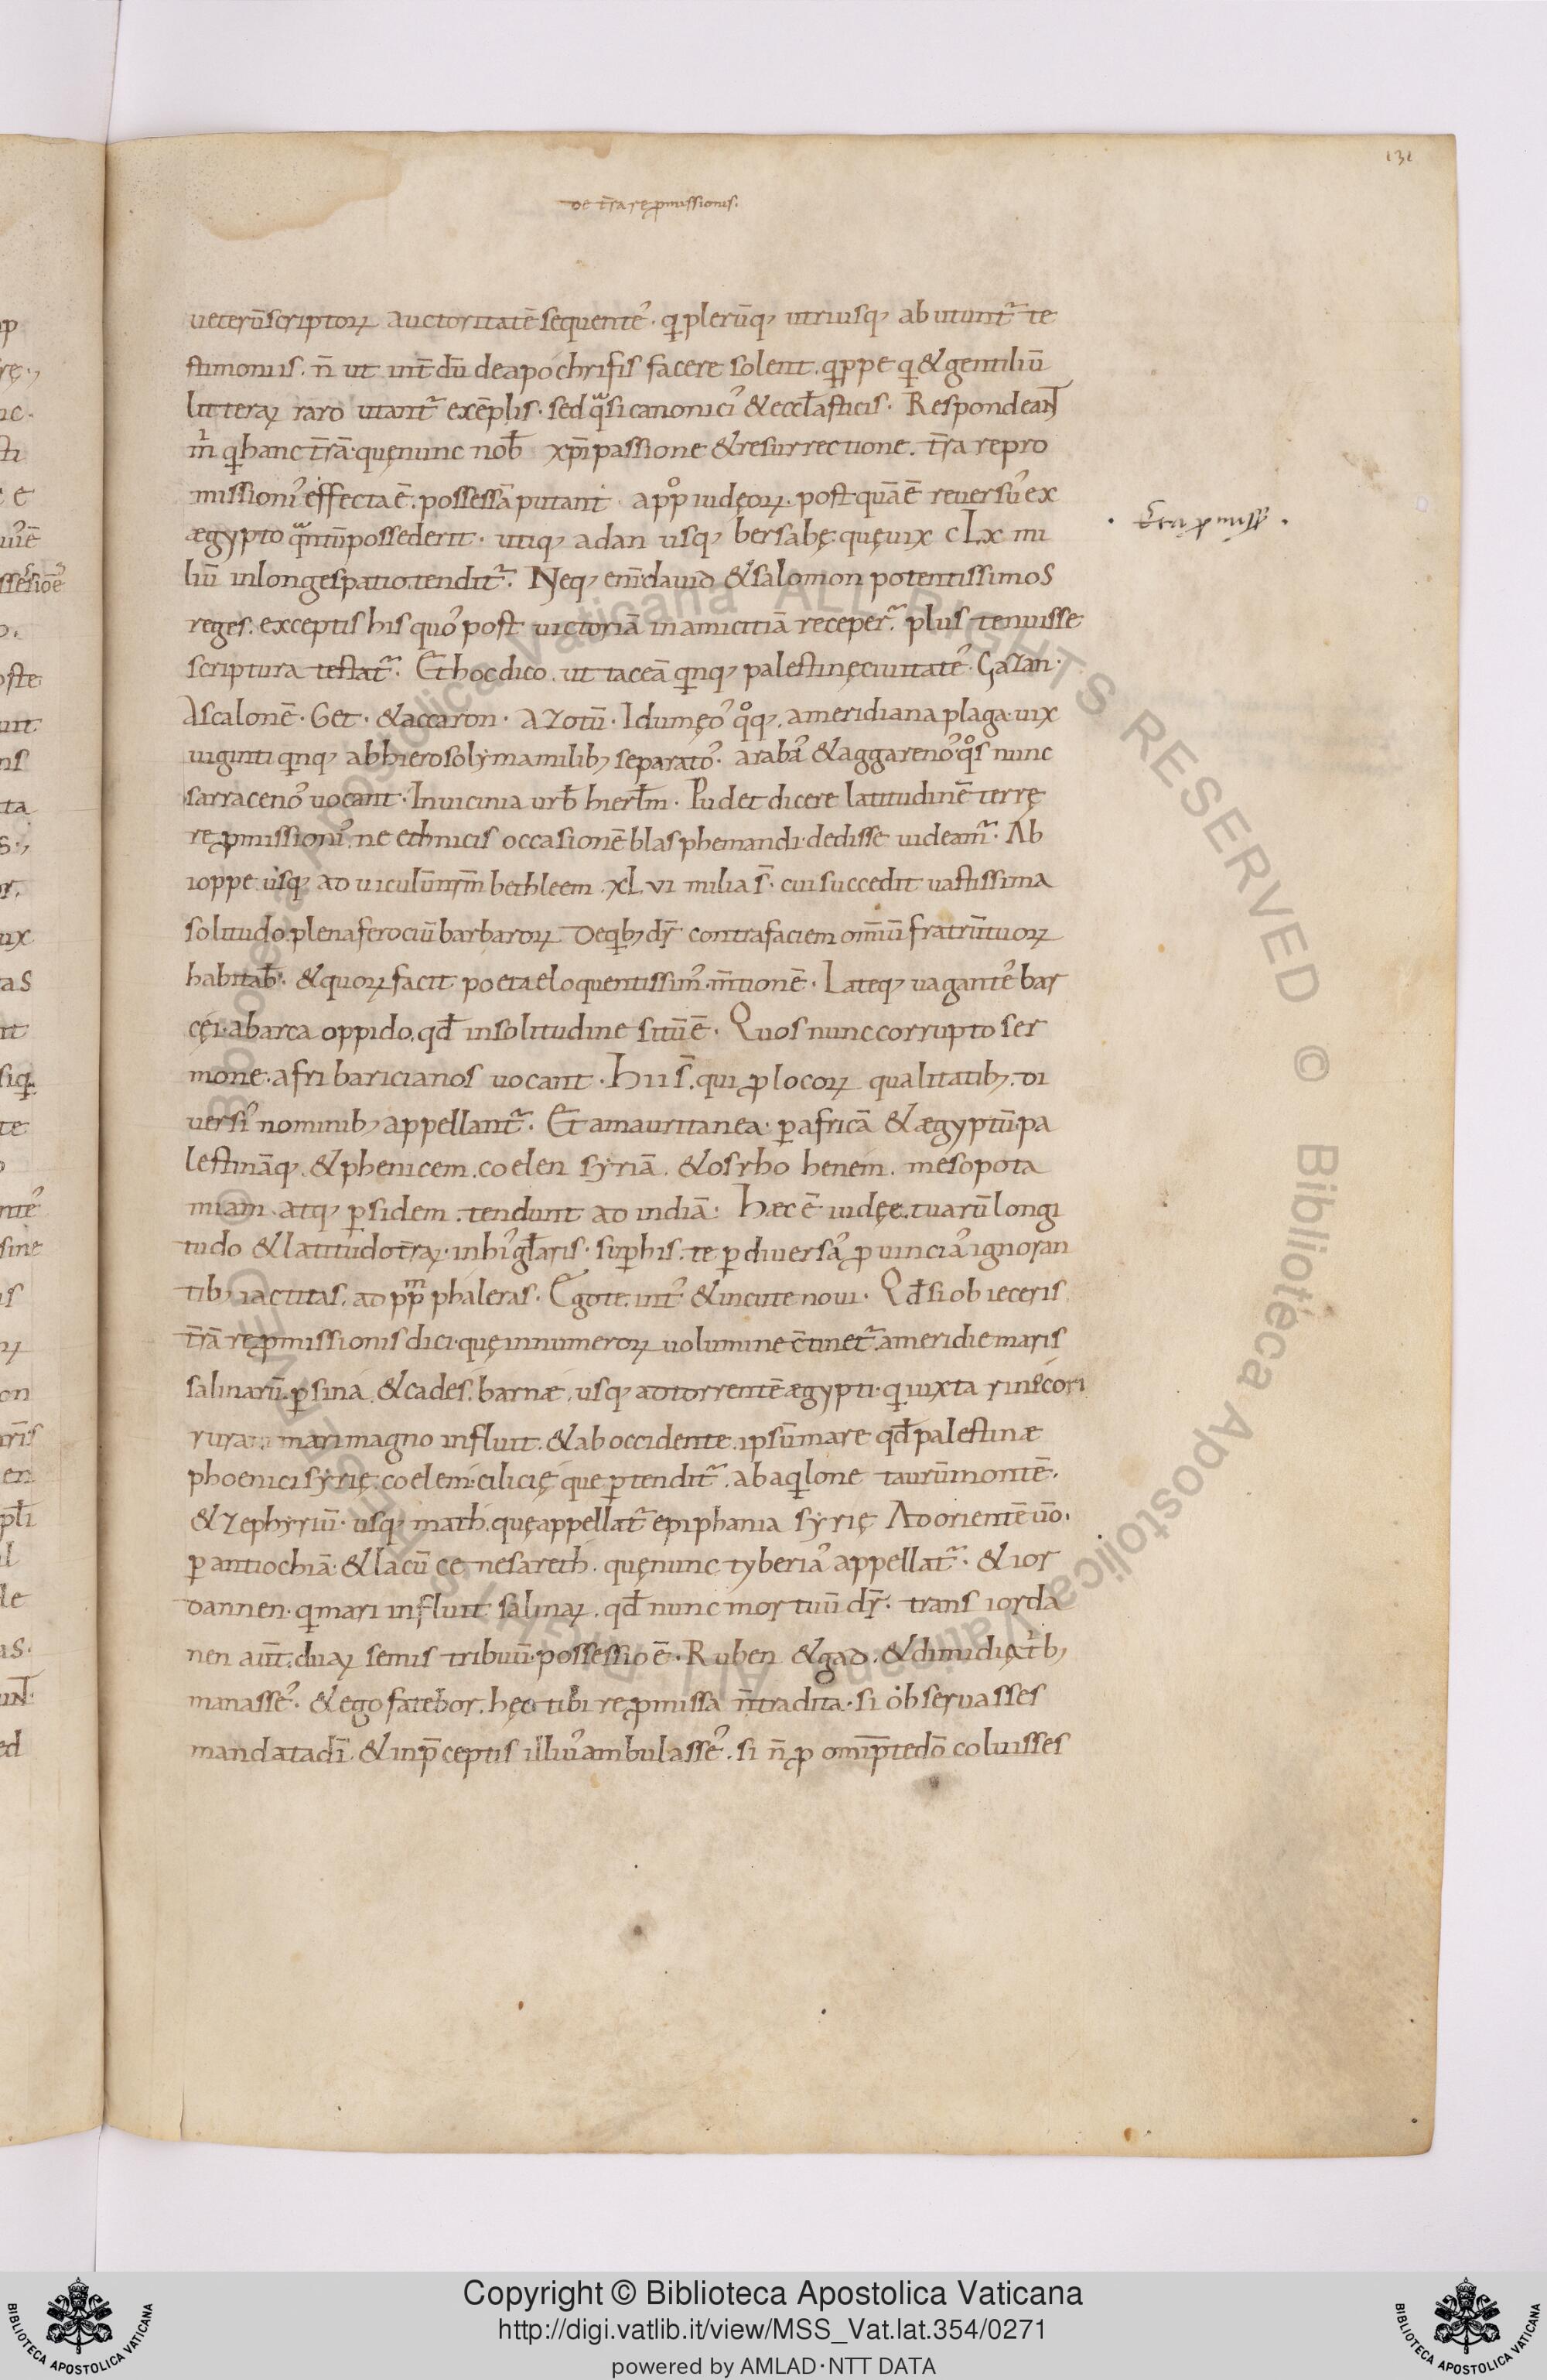 131
de t̄ra rep̱missionis.
ueterū scriptoꝝ auctoritatē sequente᾿. qi plerūq; utriusq; abutunt᷑ te
stimoniis. n̄ ut int̄dū de apochrifis facere solent. qippe qi & gentiliū
litteraꝝ raro utant᷑ exēplis. sed qᵃsi canonici᾿ & eccl̄asticis. Respondeant
m̄ qi hanc t̄rā. quę nunc nob̄ xp̄i passione & resurrectione. t̄ra repro
missioni᾿ effecta ē. possessā putant a pp̊ iudęoꝝ. postquā ē reuersu᾿ ex
ægypto qᵃntū possederit. utiq; a dan usq; bersabę. quę uix cLx mi
liū in longe spatio tendit᷑. Neq; enī dauid & salomon potentissimos
reges. exceptis his quo᾿ post uictoriā in amicitiā receper᷑. plus tenuisse
scriptura testat᷑. Et hoc dico. ut taceā qinq; palestinę ciuitate᾿. Gazan.
Ascalonē. Get. & accaron. azotū. Idumęo᾿ qoq;. a meridiana plaga. uix
uiginti qinq; ab hierosolyma milib; separato᾿. araba᾿ & aggareno᾿. qos nunc
sarraceno᾿ uocant. In uicinia urb̄ hierl̄m. Pudet dicere latitudinē terrę
rep̱missioni᾿. ne ethnicis occasionē blasphemandi. dedisse uideam᷑. Ab
ioppe usq; ad uiculū nr̄m bethleem. xL vi milia s̄. cui succedit uastissima
solitudo. plena ferociū barbaroꝝ de qib; dr̄ contra faciem omīū fratrū tuoꝝ
habitab̄. & quoꝝ facit poeta eloquentissim᾿. m̄tionē. Lateq; uagante᾿ bar
cęi. a barca oppido. qd̄ in solitudine situ ē. Quos nunc corrupto ser
mone. afri baricianos uocant. Hii s̄. qui p̱ locoꝝ qualitatib;. di
uersi᾿ nominib; appellant᷑. Et a mauritanea. ꝑ africā & ægyptū. pa
lestināq;. & phenicem. coelen syriā. & osrhohenem. mesopota
miam. atq; ꝑsidem. tendunt ad indiā. Hæc ē iudęe. tuarū longi
tudo & latitudo t̄raꝝ. in hi᾿ gl̄aris. suꝑ his. te ꝑ diuersa᾿ p̱uincia᾿ ignoran
tib; iactitas. ad pp̄m phaleras. Ego te. int᾿ & in cute noui. Qd̄ si obieceris
t̄rā rep̱missionis dici. quę in numeroꝝ uolumine c̄tinet᷑. a meridie maris
salinarū. ꝑ sina. & cades. barnæ. usq; ad torrentē ægypti. qi iuxta rinocori
rura mari magno influit. & ab occidente. ipsū mare qd̄ palestinæ
phoenici syrię. coelem. cilicię que ꝑtendit᷑. ab aqilone taurū montē.
& zephyriū. usq; math. quę appellat᷑ epiphania syrię Ad orientē uo̅.
ꝑ antiochiā. & lacū cenesareth. quę nunc tyberia᾿ appellat᷑. & ior
dannen. qi mari influit salinaꝝ. qd̄ nunc mortuū dr̄. trans iorda
nen aut̄. duaꝝ semis tribuū. possessio ē. Ruben & gad. & dimidię trib;
manasse᾿. & ego fatebor. hęc tibi rep̱missa n̄ tradita. si obseruasses
mandata dī. & in p̄ceptis illiu᾿ ambulasse᾿. si n̄ p̱ omīpte dō coluisses
Copyright © Biblioteca Apostolica Vaticana
http://digi.vatlib.it/view/MSS_Vat.lat.354/0271
powered by AMLAD·NTT DATA